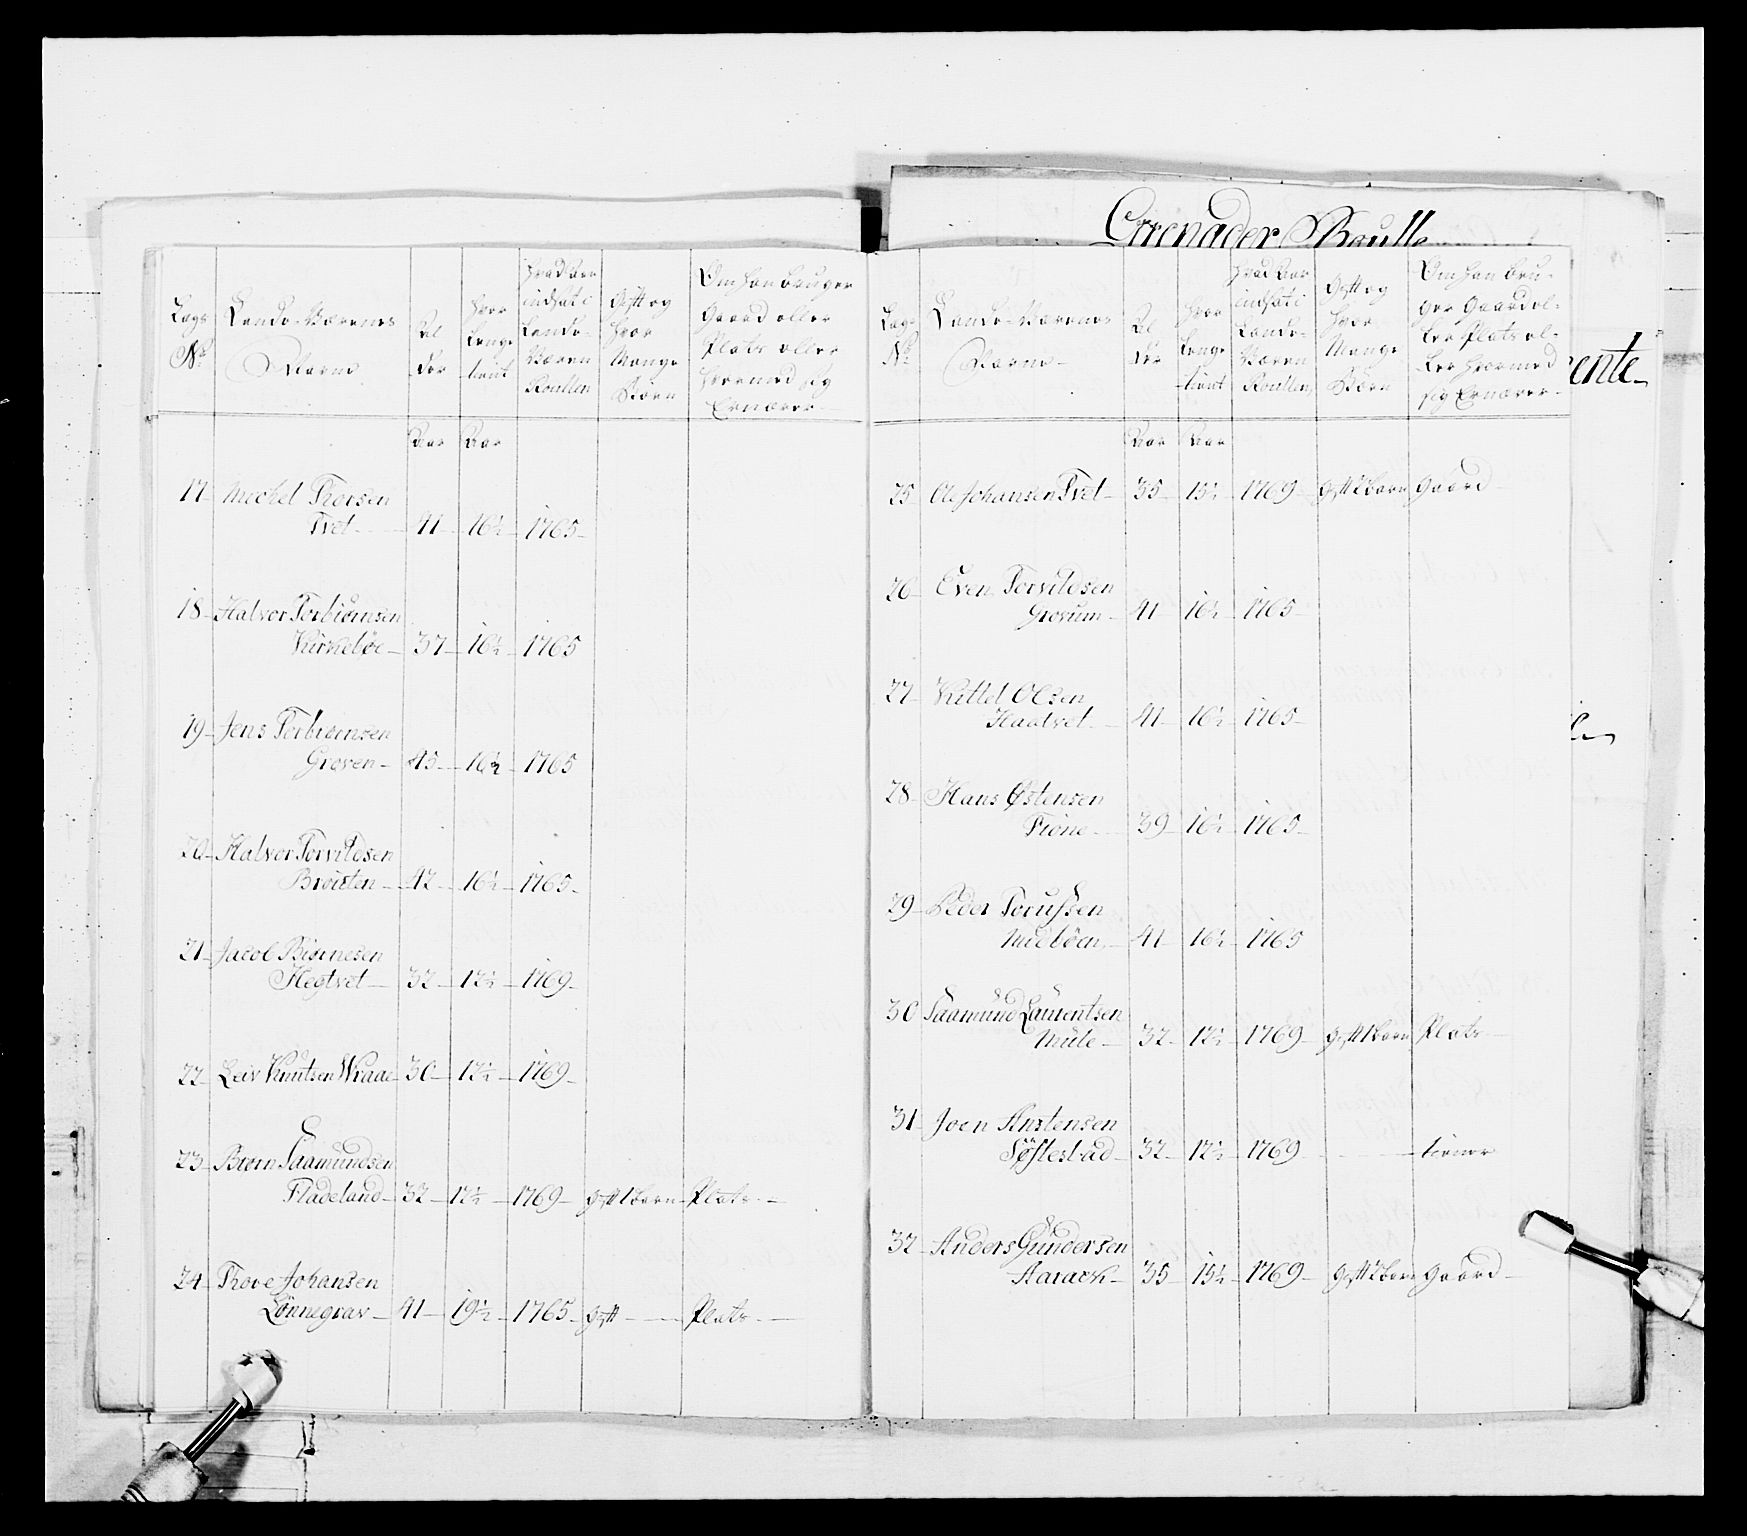 Grenader Roulle
ente
Laugs No
Lands-Værnes Navne
Al der
Hvor lenge tient
Hvad Aar indsat i Lands-Væren Roullen
Gift og Hvor Mange Børn
Om han bruger Gaard eller Plats eller Hvormed sig Ernærer
Aar Aar
17 Michel Thorsen
Tvet 41 16½ 1765
18 Halvor Torbiørnsen
Kirkebøe 37 16½ 1765
19 Jens Torbiørnsen
Groven 45 16½ 1765
20 Halvor Torvildsen
Brøisten 42 16½ 1765
21 Jacob Biørnesen
Hegtvet 32 12½ 1769
22 Leiv Knutsen Wraae 30 12½ 1769
23 Biørn Saamundsen
Fladeland 32 12½ 1769 gift 1 barn Plats
24 Thore Johansen
Lønnegrav 41 19½ 1765 gift Plats
Laugs No
Lands-Værnes Navne
Al der
Hvor lenge tient
Hvad Aar indsat i Lands-Væren Roullen
Gift og Hvor Mange Børn
Om han bruger Gaard eller Plats eller Hvormed sig Ernærer
Aar Aar
25 Ole Johansen Tvet 35 15½ 1769 gift 2 barn Gaard
26 Even Torvildsen
Grovum 41 16½ 1765
27 Kittel Olsen
Haatvet 41 16½ 1765
28 Hans Østensen
Fione 39 16½ 1765
29 Peder Torussen
Midbøen 41 16½ 1765
30 Saamund Laurentsen
Mule 32 12½ 1769 gift 1 barn Plats
31 Joen Anstensen
Søftestad 32 12½ 1769 tiener
32 Anders Gundersen
Aarack 35 15½ 1769 gift 2 barn Gaard